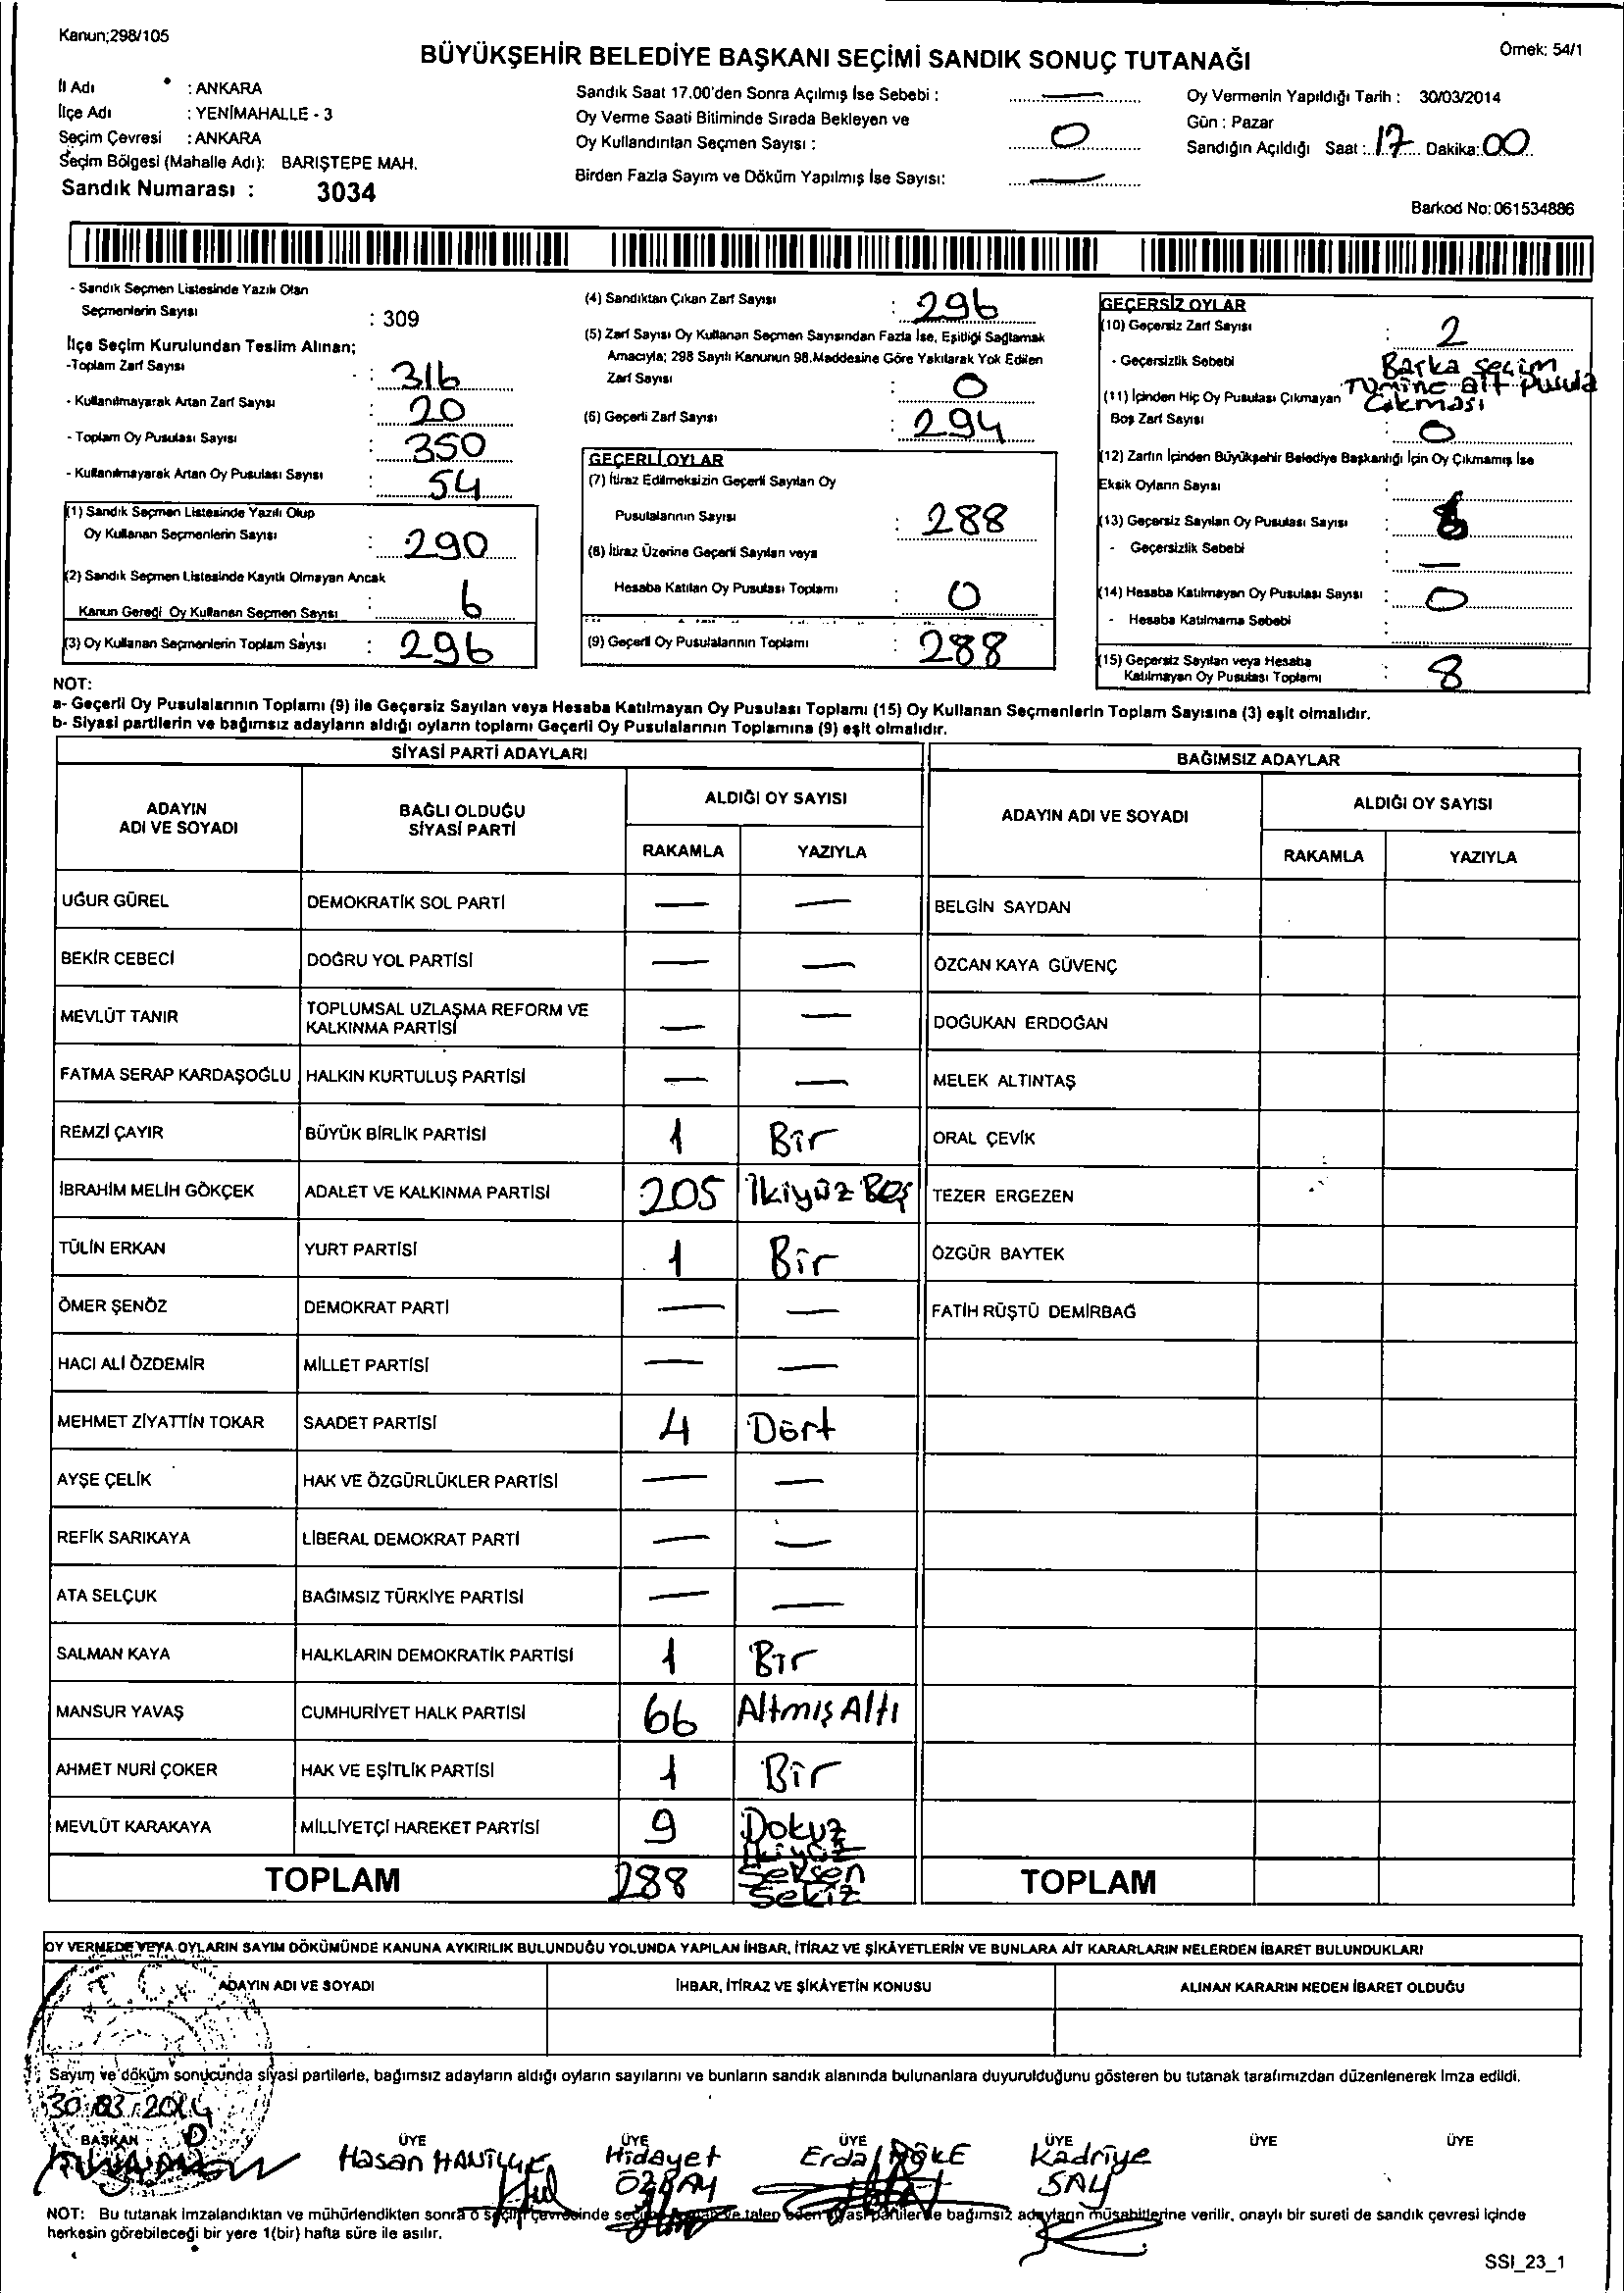 Kanun;298/105
Örnek: 54/1
BÜYÜKŞEHİR BELEDİYE BAŞKANI SEÇİMİ SANDIK SONUÇ TUTANAĞI
İl Adı : ANKARA
İlçe Adı : YENİMAHALLE - 3
Seçim Çevresi : ANKARA
Seçim Bölgesi (Mahalle Adı): BARIŞTEPE MAH.
Sandık Numarası : 3034
Sandık Saat 17.00'den Sonra Açılmış İse Sebebi : —
Oy Verme Saati Bitiminde Sırada Bekleyen ve
Oy Kullandırılan Seçmen Sayısı : 0
Birden Fazla Sayım ve Döküm Yapılmış İse Sayısı: —
Oy Vermenin Yapıldığı Tarih : 30/03/2014
Gün : Pazar
Sandığın Açıldığı Saat : 17 Dakika: 00
Barkod No: 061534886
- Sandık Seçmen Listesinde Yazılı Olan
Seçmenlerin Sayısı : 309
İlçe Seçim Kurulundan Teslim Alınan;
-Toplam Zarf Sayısı : 316
- Kullanılmayarak Artan Zarf Sayısı : 20
- Toplam Oy Pusulası Sayısı : 350
- Kullanılmayarak Artan Oy Pusulası Sayısı : 54
(1) Sandık Seçmen Listesinde Yazılı Olup
Oy Kullanan Seçmenlerin Sayısı : 290
(2) Sandık Seçmen Listesinde Kayıtlı Olmayan Ancak
Kanun Gereği Oy Kullanan Seçmen Sayısı : 6
(3) Oy Kullanan Seçmenlerin Toplam Sayısı : 296
(4) Sandıktan Çıkan Zarf Sayısı : 296
(5) Zarf Sayısı Oy Kullanan Seçmen Sayısından Fazla İse, Eşitliği Sağlamak
Amacıyla; 298 Sayılı Kanunun 98.Maddesine Göre Yakılarak Yok Edilen
Zarf Sayısı : 0
(6) Geçerli Zarf Sayısı : 294
GEÇERLİ OYLAR
(7) İtiraz Edilmeksizin Geçerli Sayılan Oy
Pusulalarının Sayısı : 288
(8) İtiraz Üzerine Geçerli Sayılan veya
Hesaba Katılan Oy Pusulası Toplamı : 0
(9) Geçerli Oy Pusulalarının Toplamı : 288
GEÇERSİZ OYLAR
(10) Geçersiz Zarf Sayısı : 2
- Geçersizlik Sebebi : Başka seçim
türüne ait pusula
çıkması
(11) İçinden Hiç Oy Pusulası Çıkmayan
Boş Zarf Sayısı : 0
(12) Zarfın İçinden Büyükşehir Belediye Başkanlığı İçin Oy Çıkmamış İse
Eksik Oyların Sayısı :
(13) Geçersiz Sayılan Oy Pusulası Sayısı :
- Geçersizlik Sebebi : —
(14) Hesaba Katılmayan Oy Pusulası Sayısı : 0
- Hesaba Katılmama Sebebi :
(15) Geçersiz Sayılan veya Hesaba
Katılmayan Oy Pusulası Toplamı : 8
NOT:
a- Geçerli Oy Pusulalarının Toplamı (9) ile Geçersiz Sayılan veya Hesaba Katılmayan Oy Pusulası Toplamı (15) Oy Kullanan Seçmenlerin Toplam Sayısına (3) eşit olmalıdır.
b- Siyasi partilerin ve bağımsız adayların aldığı oyların toplamı Geçerli Oy Pusulalarının Toplamına (9) eşit olmalıdır.
SİYASİ PARTİ ADAYLARI
BAĞIMSIZ ADAYLAR
ADAYIN
ADI VE SOYADI
BAĞLI OLDUĞU
SİYASİ PARTİ
ALDIĞI OY SAYISI
RAKAMLA YAZIYLA
ADAYIN ADI VE SOYADI
ALDIĞI OY SAYISI
RAKAMLA YAZIYLA
UĞUR GÜREL DEMOKRATİK SOL PARTİ — — BELGİN SAYDAN
BEKİR CEBECİ DOĞRU YOL PARTİSİ — — ÖZCAN KAYA GÜVENÇ
MEVLÜT TANIR TOPLUMSAL UZLAŞMA REFORM VE
KALKINMA PARTİSİ — — DOĞUKAN ERDOĞAN
FATMA SERAP KARDAŞOĞLU HALKIN KURTULUŞ PARTİSİ — — MELEK ALTINTAŞ
REMZİ ÇAYIR BÜYÜK BİRLİK PARTİSİ 1 Bir ORAL ÇEVİK
İBRAHİM MELİH GÖKÇEK ADALET VE KALKINMA PARTİSİ 205 İkiyüz Beş TEZER ERGEZEN
TÜLİN ERKAN YURT PARTİSİ 1 Bir ÖZGÜR BAYTEK
ÖMER ŞENÖZ DEMOKRAT PARTİ — — FATİH RÜŞTÜ DEMİRBAĞ
HACI ALİ ÖZDEMİR MİLLET PARTİSİ — —
MEHMET ZİYATTİN TOKAR SAADET PARTİSİ 4 Dört
AYŞE ÇELİK HAK VE ÖZGÜRLÜKLER PARTİSİ — —
REFİK SARIKAYA LİBERAL DEMOKRAT PARTİ — —
ATA SELÇUK BAĞIMSIZ TÜRKİYE PARTİSİ — —
SALMAN KAYA HALKLARIN DEMOKRATİK PARTİSİ 1 Bir
MANSUR YAVAŞ CUMHURİYET HALK PARTİSİ 66 Altmış Altı
AHMET NURİ ÇOKER HAK VE EŞİTLİK PARTİSİ 1 Bir
MEVLÜT KARAKAYA MİLLİYETÇİ HAREKET PARTİSİ 9 Dokuz
TOPLAM 288 İkiyüz
Seksen
Sekiz
TOPLAM
OY VERMEDE VEYA OYLARIN SAYIM DÖKÜMÜNDE KANUNA AYKIRILIK BULUNDUĞU YOLUNDA YAPILAN İHBAR, İTİRAZ VE ŞİKÂYETLERİN VE BUNLARA AİT KARARLARIN NELERDEN İBARET BULUNDUKLARI
ADAYIN ADI VE SOYADI İHBAR, İTİRAZ VE ŞİKÂYETİN KONUSU ALINAN KARARIN NEDEN İBARET OLDUĞU
Sayım ve döküm sonucunda siyasi partilerle, bağımsız adayların aldığı oyların sayılarını ve bunların sandık alanında bulunanlara duyurulduğunu gösteren bu tutanak tarafımızdan düzenlenerek imza edildi.
30.03.2014
BAŞKAN ÜYE ÜYE ÜYE ÜYE ÜYE ÜYE
Hasan Hidayet Erdal Kadriye
ÖZBAY SAY
NOT: Bu tutanak imzalandıktan ve mühürlendikten sonra o seçim çevresinde seçime katılan ve talep eden siyasi partiler ile bağımsız adayların müşahitlerine verilir, onaylı bir sureti de sandık çevresi içinde
herkesin görebileceği bir yere 1(bir) hafta süre ile asılır.
SSI_23_1